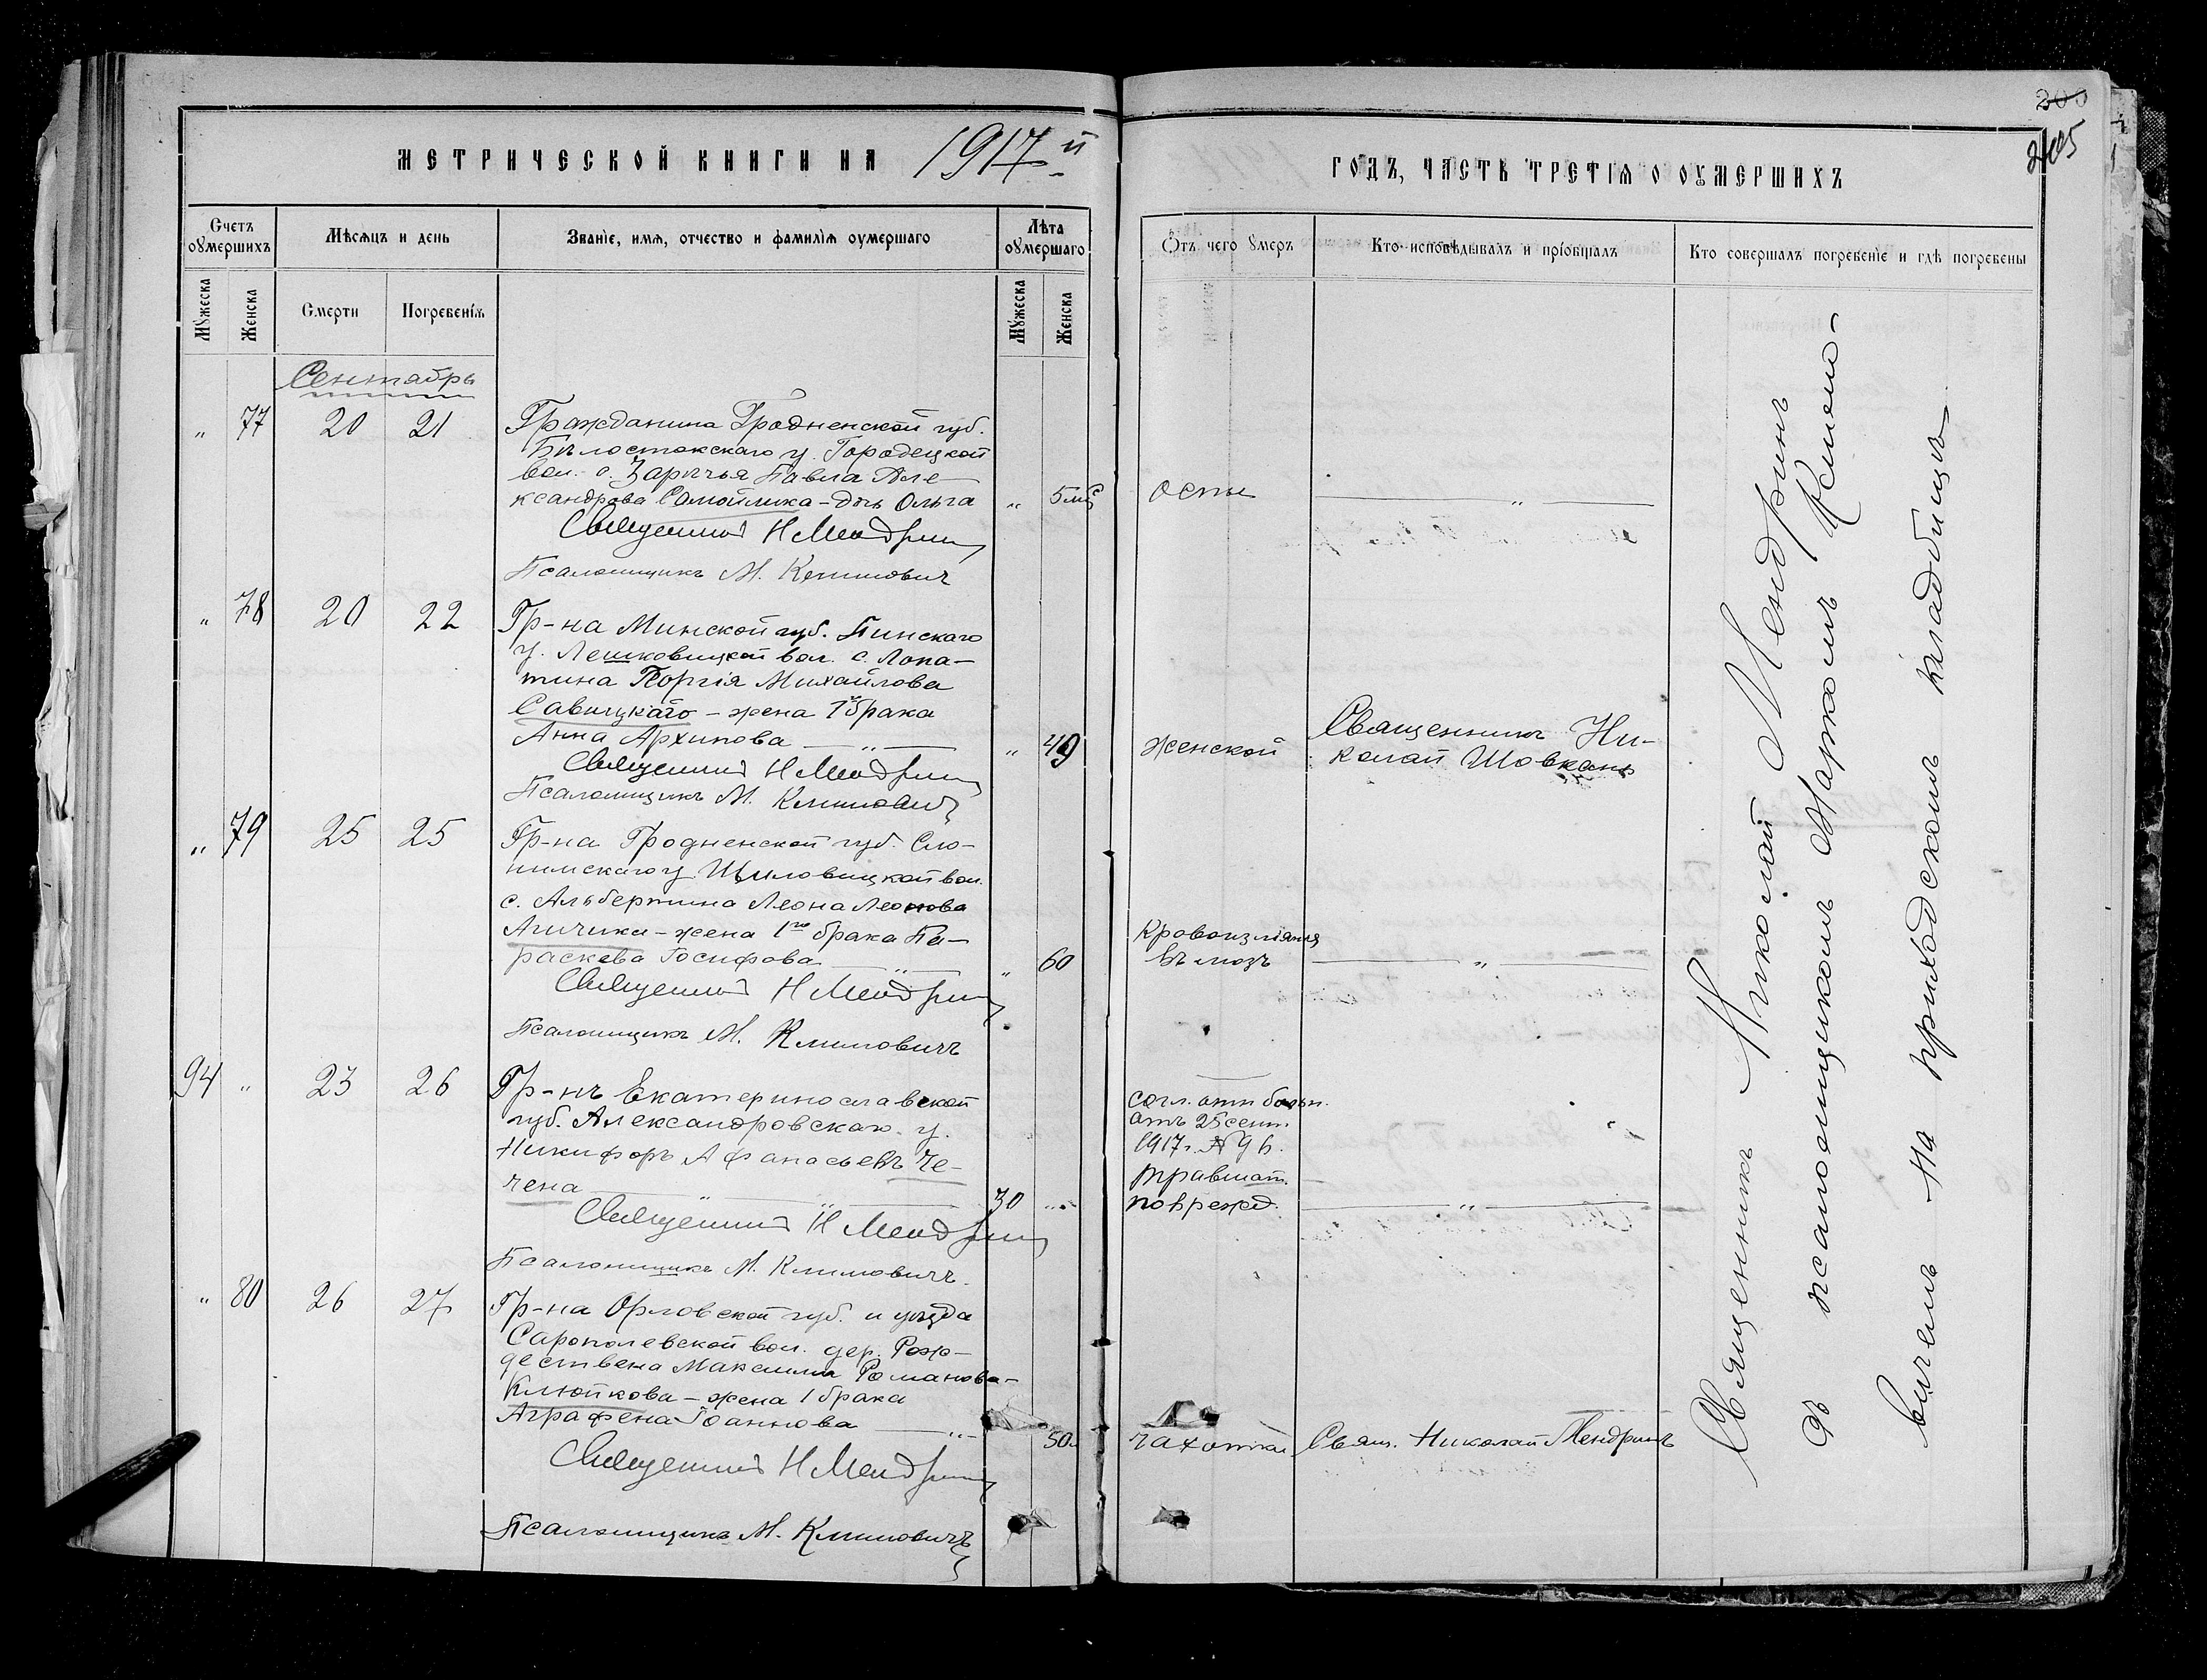 200
205
МЕТРИЧЕСКОЙ КНИГИ НА 1917й ГОДЪ, ЧАСТЬ ТРЕТІѦ О ОУМЕРШИХЪ
Счетъ оумершихъ
Мѣсѧцъ и день
Званіе, имѧ, отчество и фамиліѧ оумершаго
Лѣта оумершаго
Отъ чего умеръ
Кто исповѣдывалъ и пріобщалъ
Кто совершалъ погребеніе и гдѣ погребены
Мужеска
Женска
Смерти
Погребеніѧ
Мужеска
Женска
Сентябрь
" 77 20 21 Гражданина Гродненской губ.
Бѣлостокскаго у. Городецкой
вол. с. Зарѣчья Павла Але-
ксандрова Самойлика - дочь Ольга " 5 мц оспы "
Священникъ Н Мендринъ
Псаломщикъ М. Климовичъ
" 78 20 22 Гр-на Минской губ. Пинскаго
у. Лешковицкой вол. с. Лопа-
тина Георгія Михайлова
Савицкаго - жена 1 брака
Анна Архипова " " 49 женской Священникъ Ни-
колай Шовкань
Священникъ Н Мендринъ
Псаломщикъ М. Климовичъ
" 79 25 25 Гр-на Гродненской губ. Сло-
нимскаго у. Шиловицкой вол.
с. Альбертина Леона Леонова
Агичика - жена 1го брака Па-
раскева Іосифова " " 60 Кровоизліянія
въ мозъ "
Священникъ Н Мендринъ
Псаломщикъ М. Климовичъ
94 " 23 26 Гр-нъ Екатеринославской
губ. Александровскаго у.
Никифоръ Афанасьевъ Че-
чена " " 30 "
согл. отн больн.
отъ 25 сент.
1917 г. №
травмат.
поврежд. "
Священникъ Н Мендринъ
Псаломщикъ М. Климовичъ.
" 80 26 27 Гр-на Орловской губ. и уѣзда
вол. дер. Рож-
дествена Максима Романова-
Клюткова - жена 1 брака
Аграфена Іоаннова " 50 чахотки Свящ. Николай Мендринъ
Священникъ Н Мендринъ
Псаломщикъ М. Климовичъ
Священникъ Николай Мендринъ
съ псаломщикомъ Маркомъ Климо-
вичемъ На приходскомъ кладбищѣ